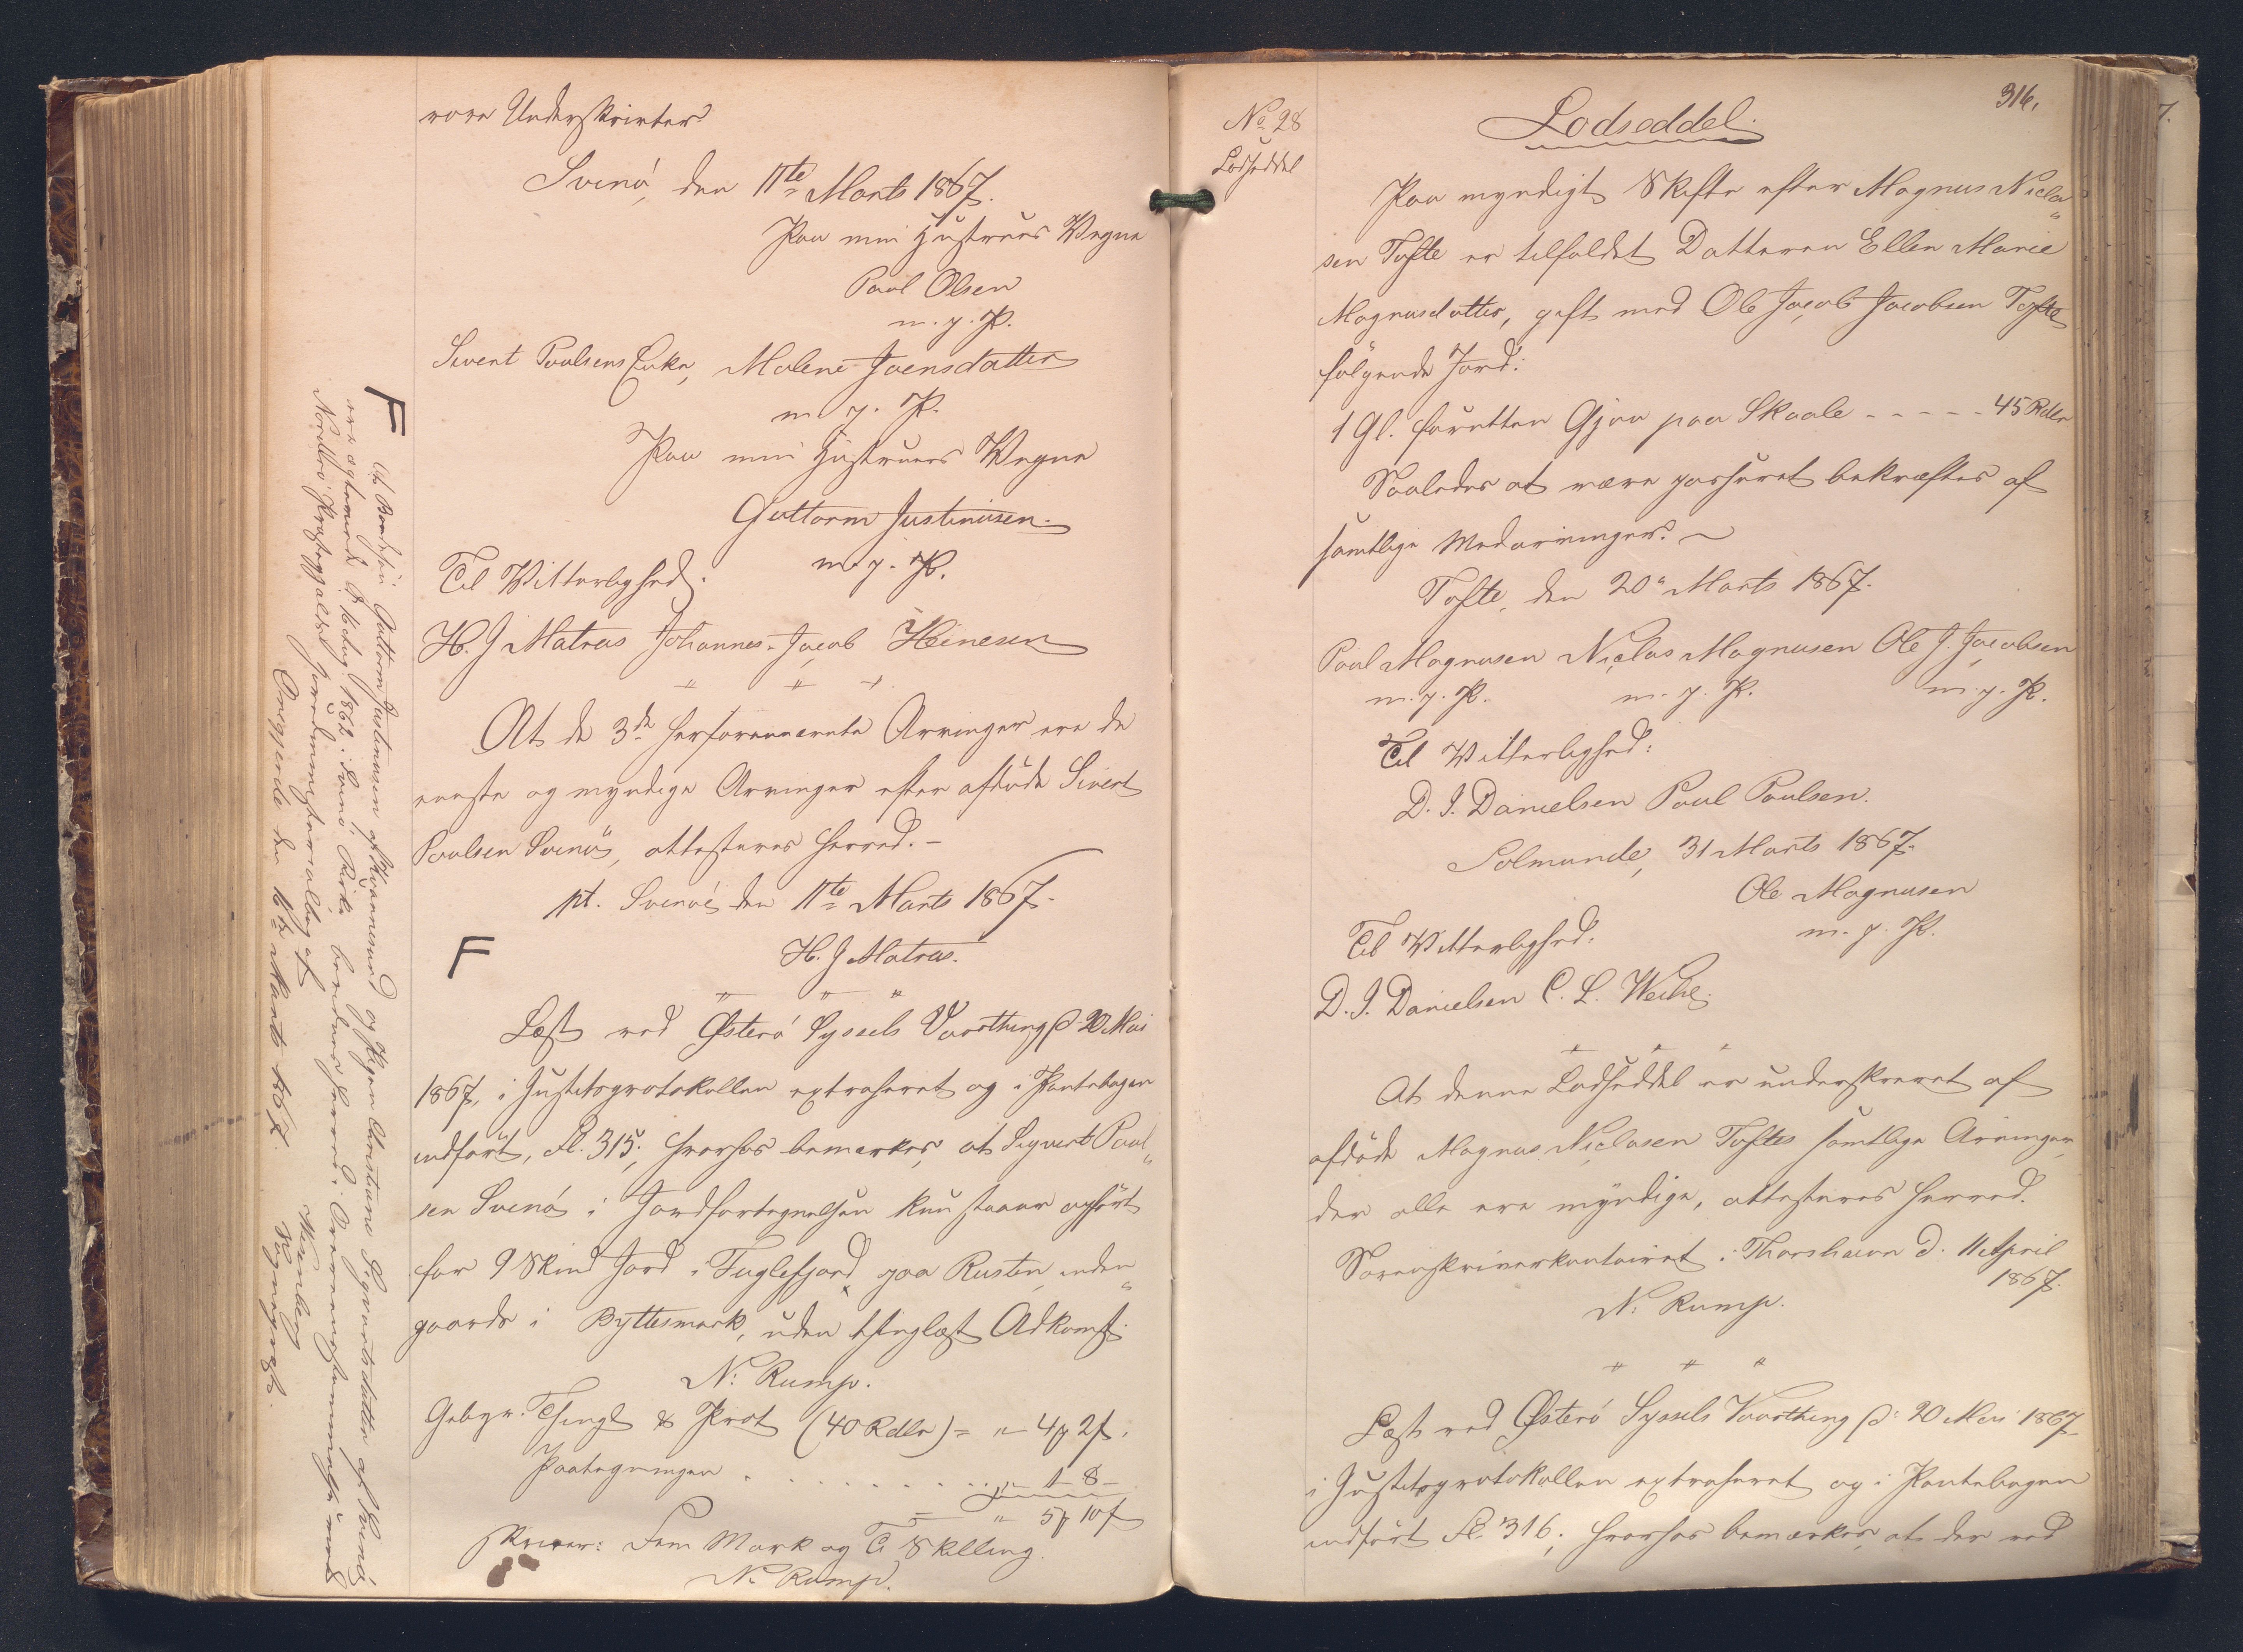 vore Underskrifter.
Svinö, den 11te Marts 1867.
Paa min Hustrues Vegne
Poul Olsen
m. p. P.
Sivert Poulsens Enke, Malene Joensdatter
m. p. P.
Paa min Hustrues Vegne
Guttorm Justinusen.
m. p. P.
Til Vitterlighed:
H. J Matras Johannes Jacob Heinesen
" " "
At de 3de herforannævnte Arvinger ere de
eneste og myndige Arvinger efter afdöde Sivert
Poulsen Svinö, attesteres herved. -
pt. Svinö den 11te Marts 1867.
H. J Matras.
F
" " "
Læst ved Österö Syssels Vaarthing d. 20 Mai
1867, i Justitsprotokollen extraheret og i Pantebogen
indfört, Fl. 315; hvorhos bemærkes, at Sigvert Poul"
sen Svinö i Jordfortegnelsen kun staaer opfört
for 9 Skind Jord i Fuglefjord, paa Rusten, inden"
gaards i Byttesmark, uden thinglæst Adkomst.
N: Rump.
Gebyr. Thingl & Prot (40 Rdlr) = " 4 2
Paategningen . . . . . . " 1 - 8 -
" 5 10
skriver: Fem Mark og Ti Skilling.
N: Rump.
F
At Bonden Guttorm Justinusen af Kvannesund og Pigen Christiane Sigvertsdatter af Svinö
ere ægteviede d. 16 Aug. 1862 i Svinö Kirke bevidnes herved. Overeensstemmelse med
Norderö Præstegjælds Jordemmesterialbog af
Ongjerde den 16de Marts 1867.
Sognepræst.
316.
No 28
Lodseddel
Lodseddel.
Paa myndigt Skifte efter Magnus Nicla"
sen Tofte er tilfaldet Datteren Ellen Marie
Magnusdatter, gift med Ole Jacob Jacobsen Tofte
fölgende Jord:
1 Gl. foruden Gjov paa Skaale - - - - - 45 Rdlr
Saaledes at være passeret bekræftes af
samtlige Medarvinger. ~
Tofte, den 20" Marts 1867.
Poul Magnusen Niclas Magnusen Ole J. Jacobsen
m. p. P. m. p. P. m. p. P.
Til Vitterlighed:
D. J. Danielsen Poul Poulsen.
Solmunde, 31 Marts 1867.
Ole Magnusen
m. p. P.
Til Vitterlighed:
D. J. Danielsen C. L. Weihe.
" " "
At denne Lodseddel er underskrevet af
afdöde Magnus Niclasen Toftes samtlige Arvinger,
der alle ere myndige, attesteres herved.
Sorenskriverkontoiret i Thorshavn d. 11 April
1867.
N: Rump.
" " "
Læst ved Österö Syssels Vaarthing d: 20 Mai 1867
i Justitsprotokollen extraheret og i Pantebogen
indfört Fl. 316; hvorhos bemærkes, at der ved